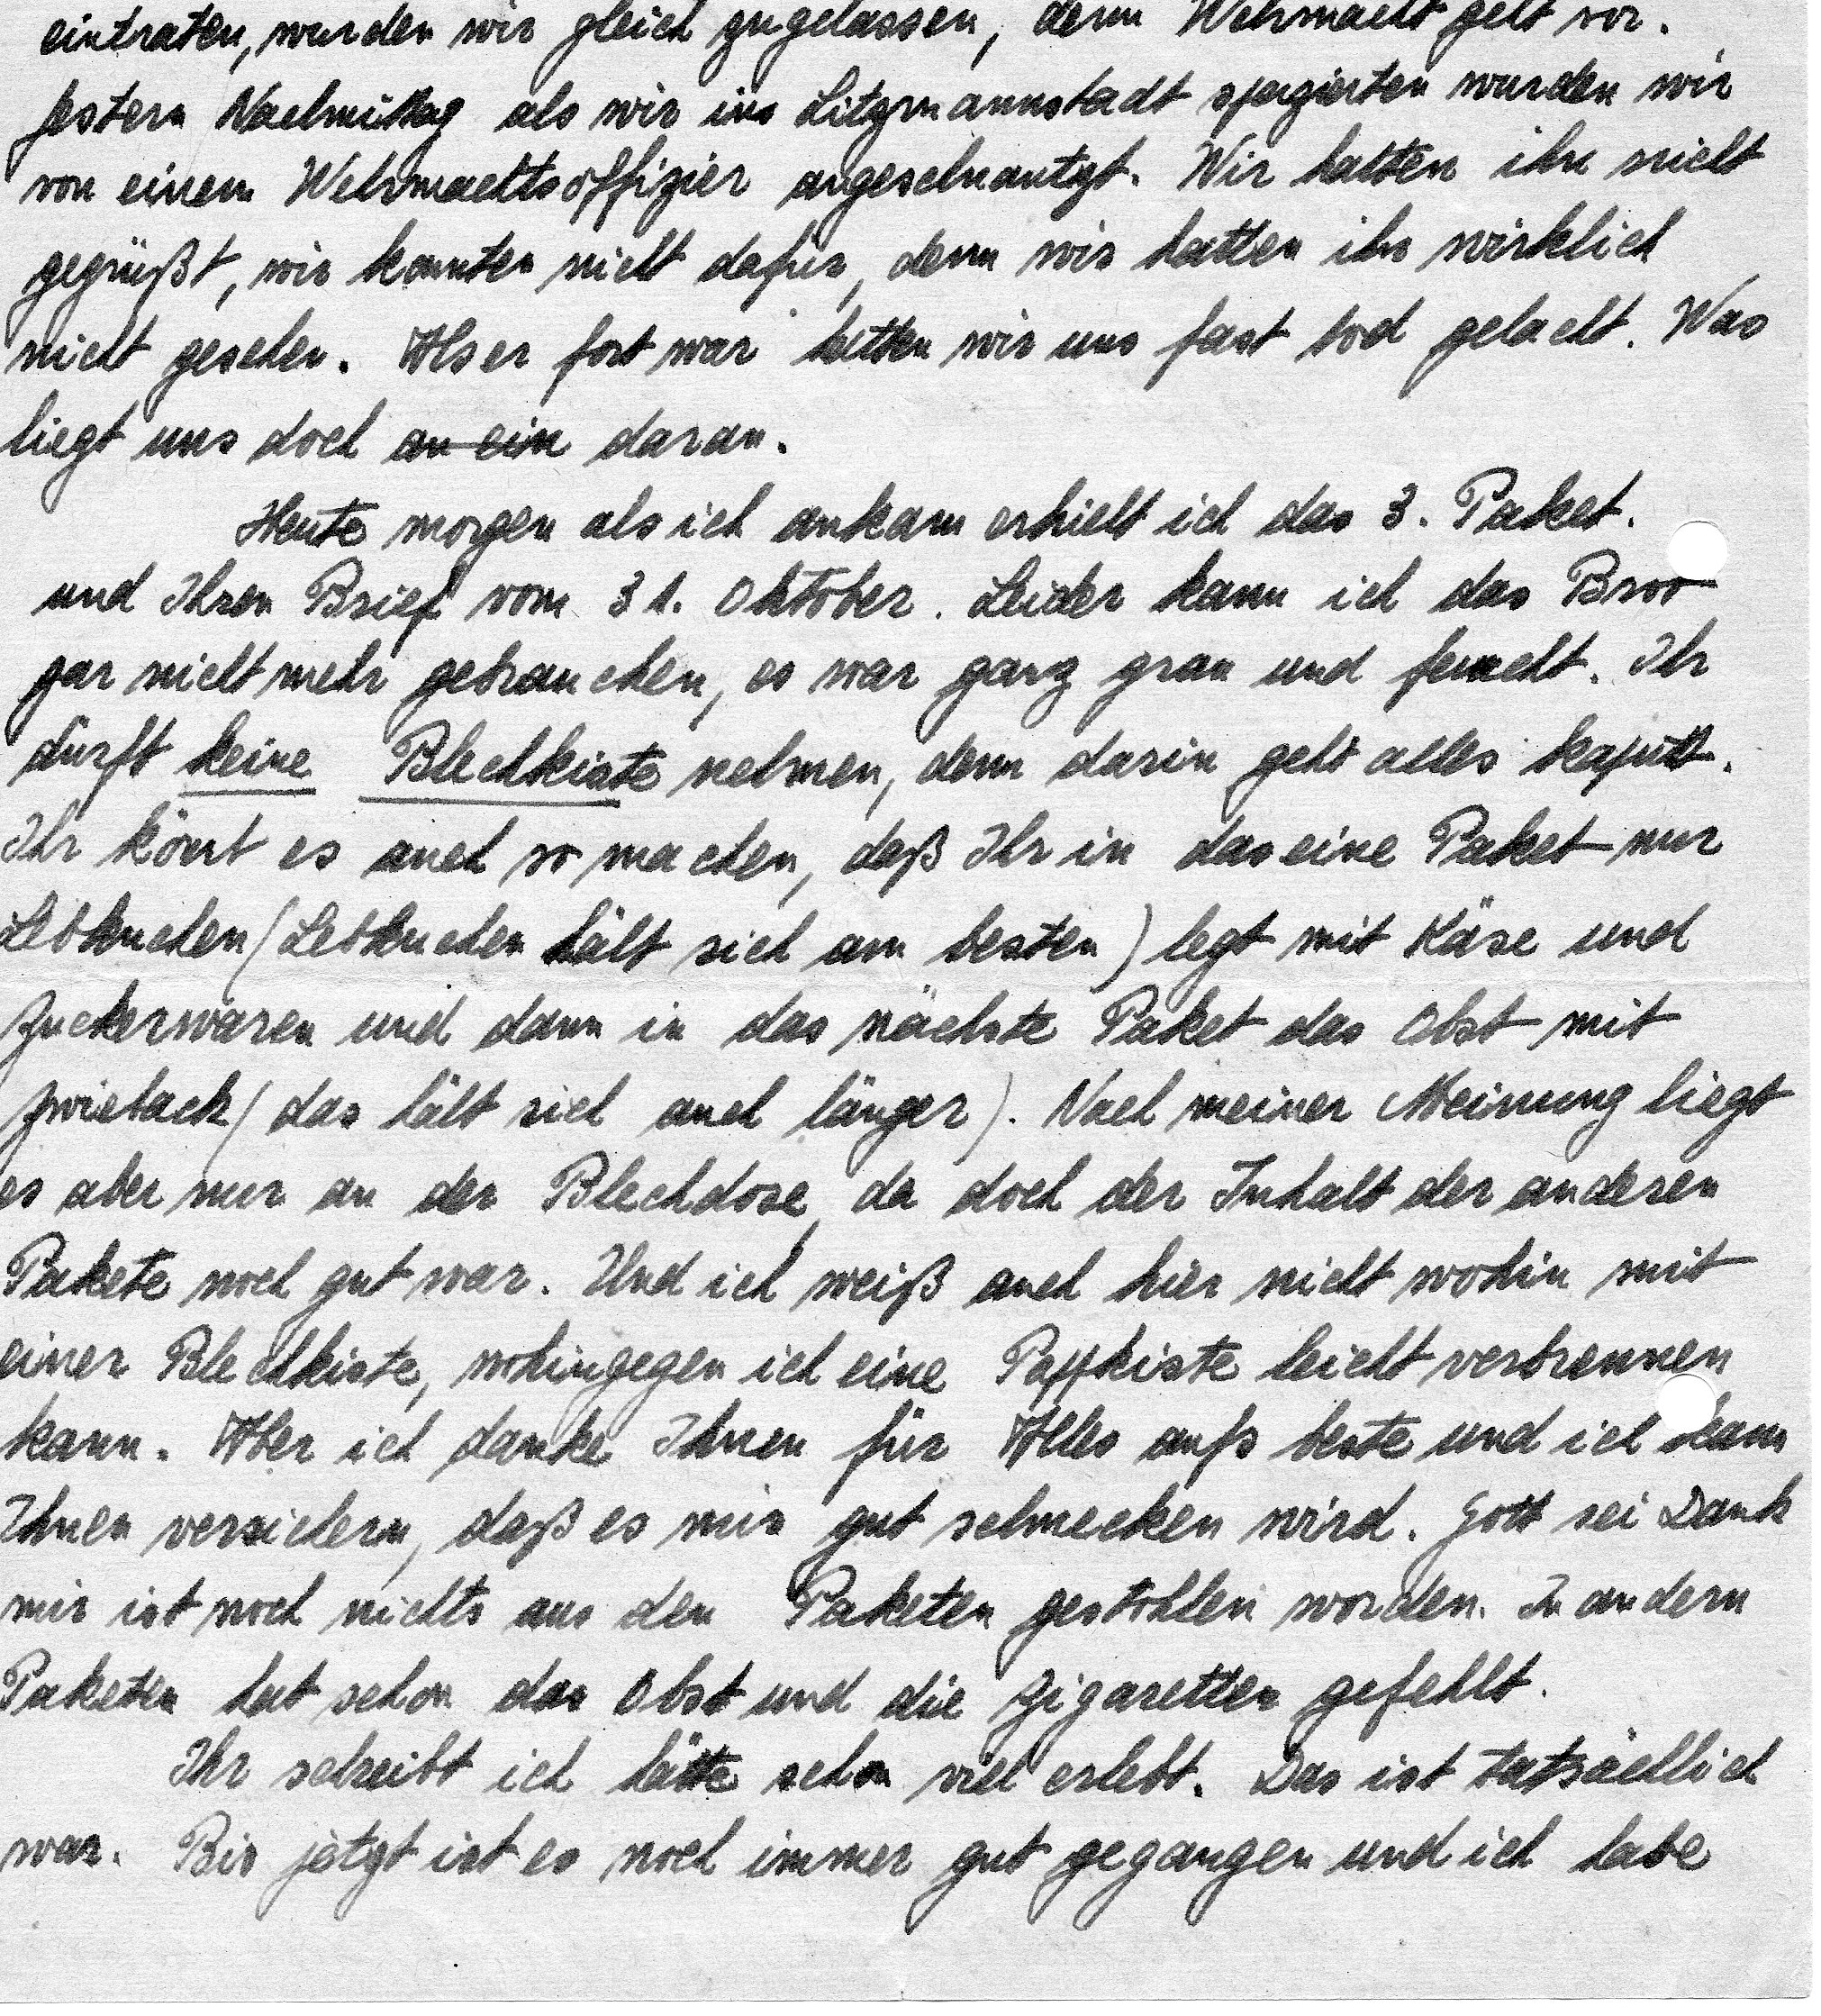 eintraten, wurden wir gleich zugelassen, denn Wehrmacht geht vor.
Gestern Nachmittag als wir ins Litzmannstadt spazierten wurden wir
von einem Wehrmachtsoffizier angeschnautzt. Wir hatten ihn nicht
gegrüßt, wir konnten nicht dafür, denn wir hatten ihn wirklich
nicht gesehen. Als er fort war hätten wir uns fast tod gelacht. Was
liegt uns doch an ein daran.
Heute morgen als ich ankam erhielt ich das 3. Paket.
und Ihren Brief vom 31. Oktober. Leider kann ich das Brot
gar nicht mehr gebrauchen, es war ganz grau und feucht. Ihr
dürft keine Blechkiste nehmen, denn darin geht alles kaputt.
Ihr könnt es auch so machen, daß Ihr in das eine Paket nur
Lebkuchen (Lebkuchen hält sich am besten) legt mit Käse und
Zuckerwaren und dann in das nächste Paket das Obst mit
Zwieback (das hält sich auch länger). Nach meiner Meinung liegt
es aber nur an der Blechdose, da doch der Inhalt der anderen
Pakete noch gut war. Und ich weiß auch hier nicht wohin mit
einer Blechkiste, wohingegen ich eine Pappkiste leicht verbrennen
kann. Aber ich danke Ihnen für Alles aufs beste und ich kann
Ihnen versichern, daß es mir gut schmecken wird. Gott sei Dank
mir ist noch nichts aus den Paketen gestohlen worden. In andern
Paketen hat schon das Obst und die Zigaretten gefehlt.
Ihr schreibt ich hätte schon viel erlebt. Das ist tatsächlich
war. Bis jetzt ist es noch immer gut gegangen und ich habe